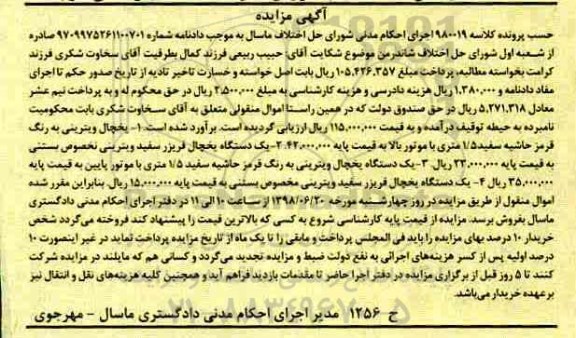 آگهی مزایده
حسب پرونده کلاسه ۹۸۰۰۱۹ اجرای احکام مدنی شورای حل اختلاف ماسال به موجب دادنامه شماره ۹۷۰۹۹۷۵۲۶۱۱۰۰۷۰۱ صادره
از شعبه اول شورای حل اختلاف شاندرمن موضوع شکایت آقای: حبیب ربیعی فرزند کمال بطرفیت آقای سخاوت شکری فرزند
کرامت بخواسته مطالبه، پرداخت مبلغ ۱۰۵,۴۲۶,۳۵۷ ریال بابت اصل خواسته و خسارت تاخیر تادیه از تاریخ صدور حکم تا اجرای
مفاد دادنامه و ۱,۳۸۰,۰۰۰ ریال هزینه دادرسی و هزینه کارشناسی به مبلغ ۲,۵۰۰,۰۰۰ ریال در حق محکوم له و به پرداخت نیم عشر
معادل ۵,۲۷۱,۳۱۸ ریال در حق صندوق دولت که در همین راستا اموال منقولی متعلق به آقای سخاوت شکری بابت محکومیت
نامبرده به حیطه توقیف درآمده و به قیمت ۱۱۵,۰۰۰,۰۰۰ ریال ارزیابی گردیده است. برآورد شده است. ۱- یخچال ویترینی به رنگ
قرمز حاشیه سفید ۱/۵ متری با موتور بالا به قیمت پایه ۴۲,۰۰۰,۰۰۰. ۲- یک دستگاه یخچال فریزر سفید ویترینی نخصوص بستنی
به قیمت پایه ۲۳,۰۰۰,۰۰۰ ریال. ۳- یک دستگاه یخچال ویترینی به رنگ قرمز حاشیه سفید ۱/۵ متری با موتور پایین به قیمت پایه
۳۵,۰۰۰,۰۰۰ ریال ۴- یک دستگاه یخچال فریزر سفید ویترینی مخصوص بستنی به قیمت پایه ۱۵,۰۰۰,۰۰۰ ریال. بنابراین مقرر شده
اموال منقول از طریق مزایده در روز چهارشنبه مورخه ۱۳۹۸/۰۶/۲۰ از ساعت ۱۰ الی ۱۱ در دفتر اجرای احکام مدنی دادگستری
ماسال بفروش برسد. مزایده از قیمت پایه کارشناسی شروع به کسی که بالاترین قیمت را پیشنهاد کند فروخته می‌گردد شخص
خریدار ۱۰ درصد بهای مزایده را باید فی المجلس پرداخت و مابقی را تا یک ماه از تاریخ مزایده پرداخت نماید در غیر اینصورت ۱۰
درصد اولیه پس از کسر هزینه‌های اجرائی به نفع دولت ضبط و مزایده تجدید می‌گردد و کسانی هم که مایلند در مزایده شرکت
کنند تا ۵ روز قبل از برگزاری مزایده در دفتر اجرا حاضر تا مقدمات بازدید فراهم آید و همچنین کلیه هزینه‌های نقل و انتقال نیز
بر عهده خریدار می‌باشد.
ح ۱۲۵۶ مدیر اجرای احکام مدنی دادگستری ماسال - مهرجوی